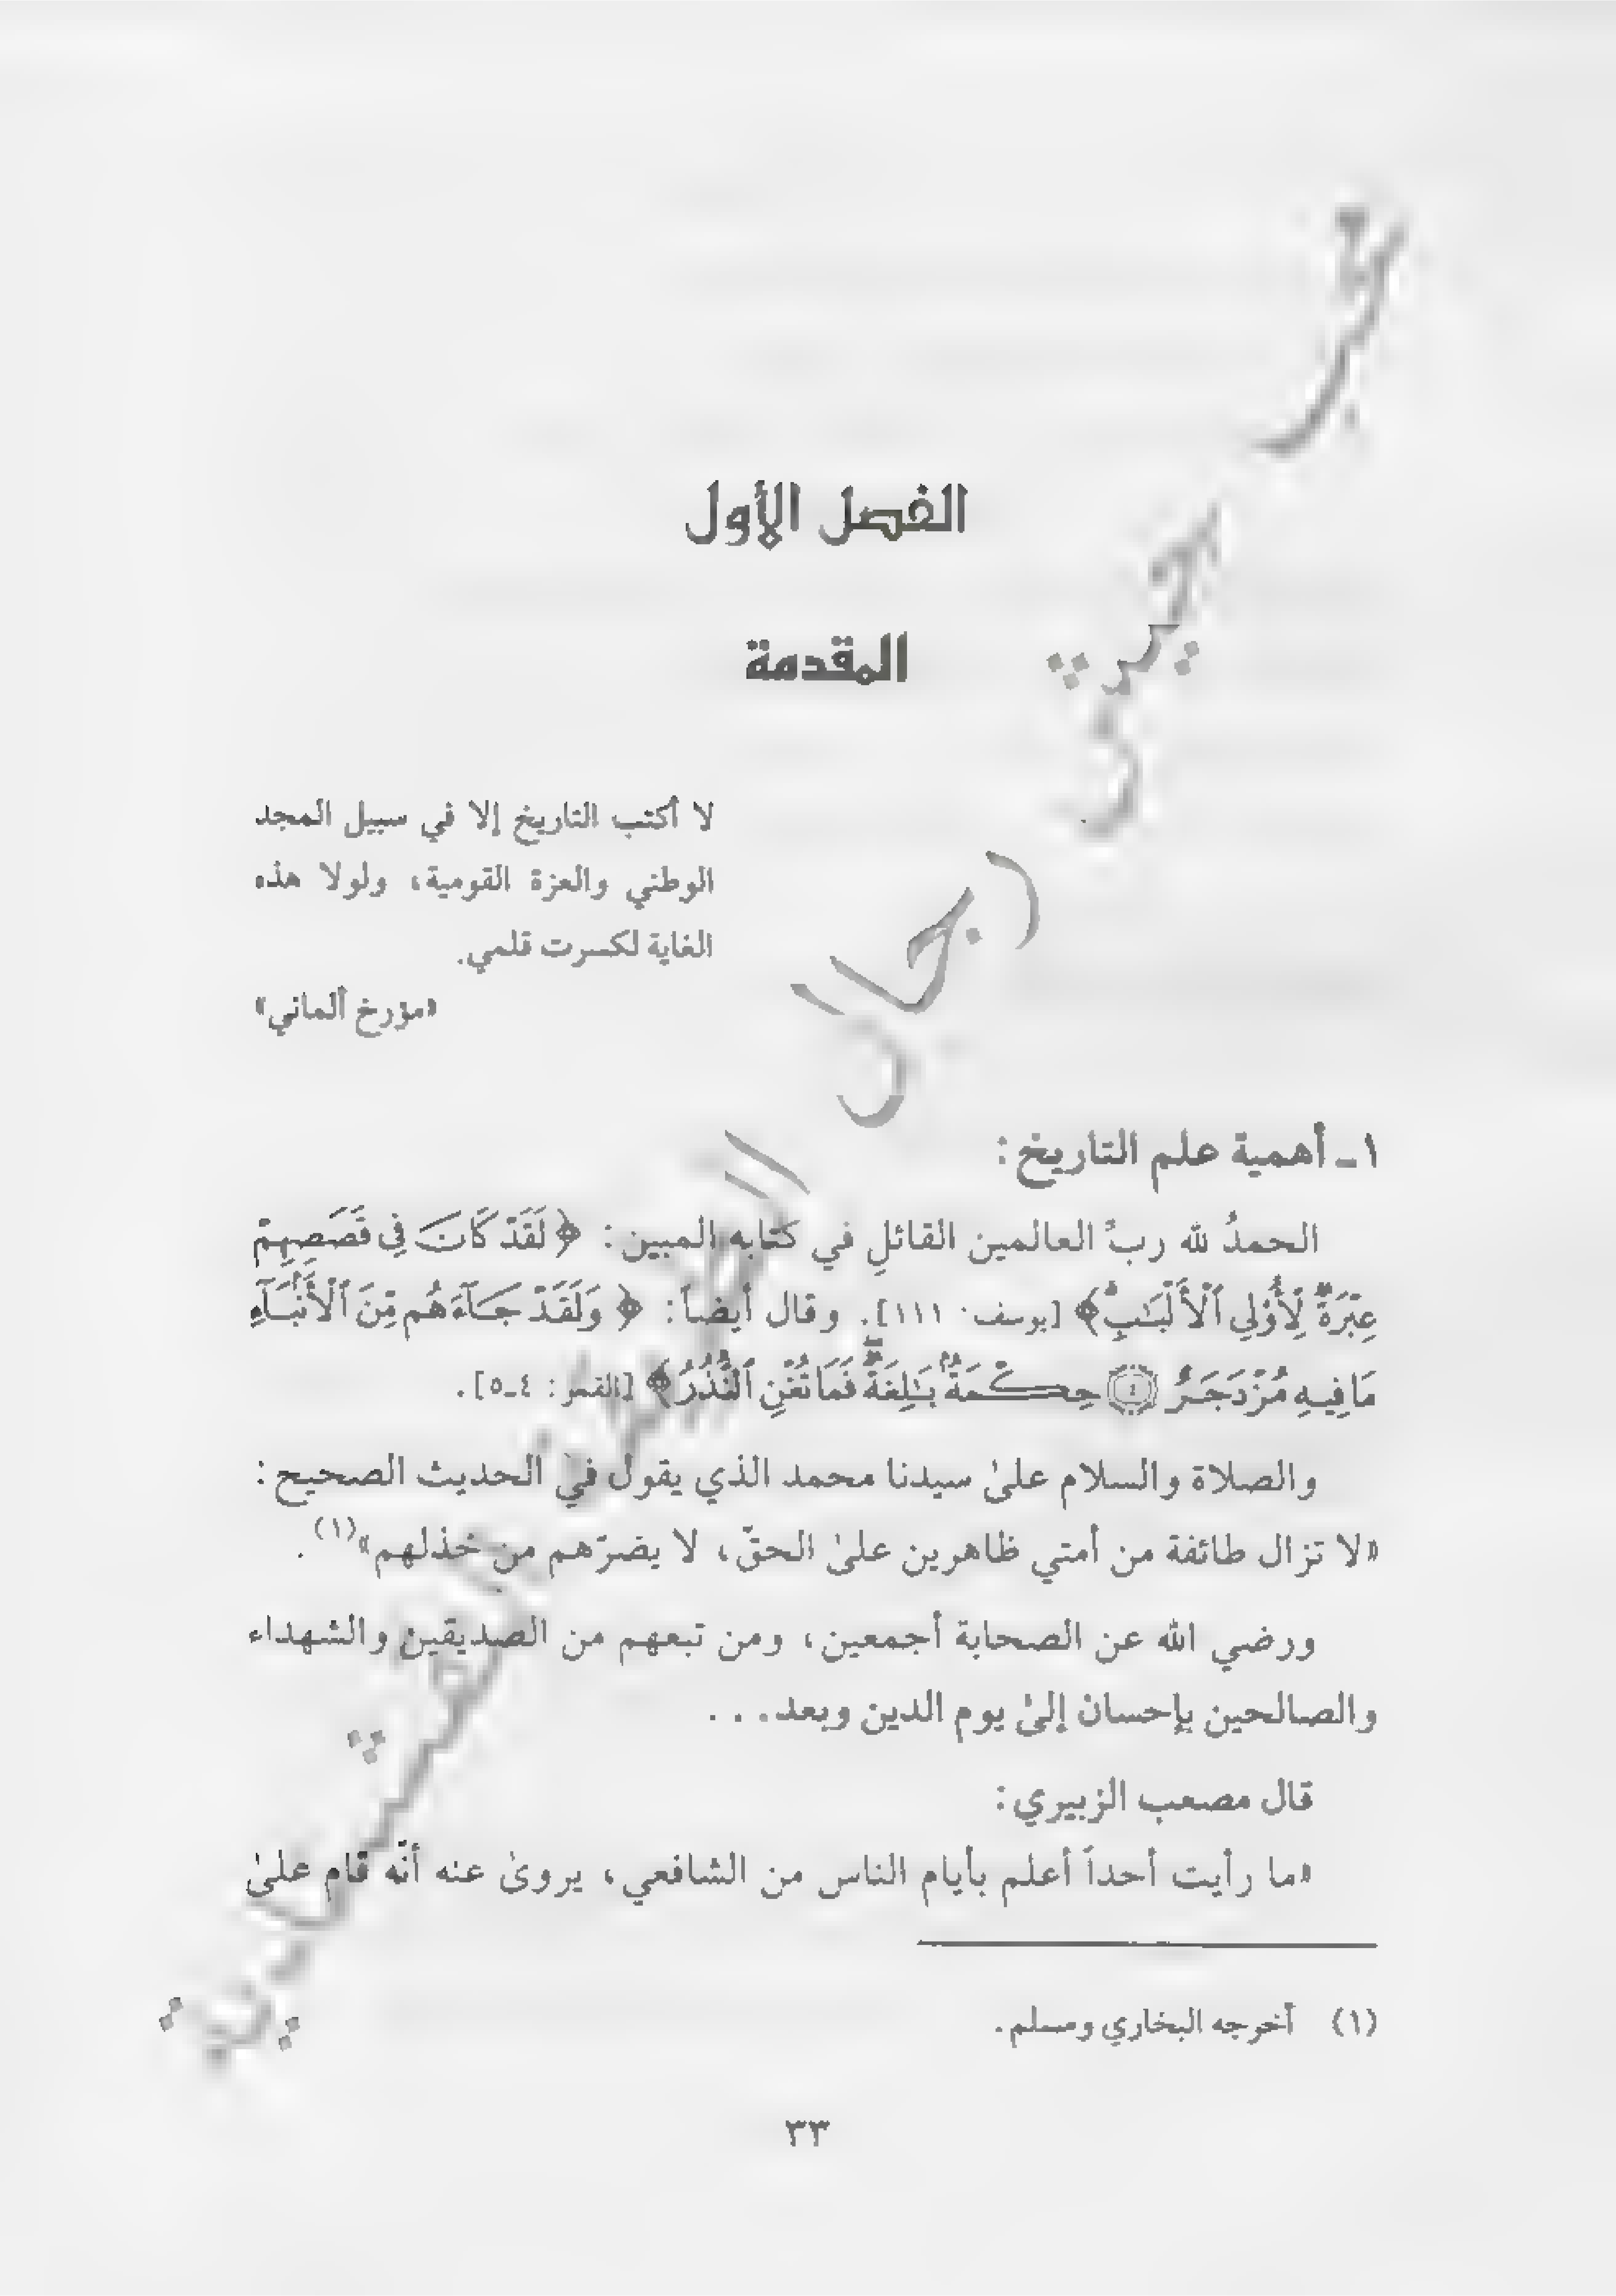 الفصل الأول
المقدمة
لا أكتب التاريخ إلا في سبيل المجد
الوطني والعزة القومية، ولولا هذه
الغاية لكسرت قلمي.
«مؤرخ ألماني»
١ـ أهمية علم التاريخ:
الحمدُ لله ربِّ العالمين القائلِ في كتابه المبين: ﴿لَقَدْ كَانَ فِي قَصَصِهِمْ
عِبْرَةٌ لِّأُوْلِي ٱلْأَلْبَٰبِ﴾ [يوسف: ١١١]. وقال أيضاً: ﴿وَلَقَدْ جَآءَهُم مِّنَ ٱلْأَنۢبَآءِ
مَا فِيهِ مُزْدَجَرٌ ٤ حِكْمَةٌۢ بَٰلِغَةٌ فَمَا تُغْنِ ٱلنُّذُرُ﴾ [القمر: ٤ـ٥].
والصلاة والسلام علىٰ سيدنا محمد الذي يقول في الحديث الصحيح:
«لا تزال طائفة من أمتي ظاهرين علىٰ الحقّ، لا يضرّهم من خذلهم»(١).
ورضي الله عن الصحابة أجمعين، ومن تبعهم من الصديقين والشهداء
والصالحين بإحسان إلىٰ يوم الدين وبعد...
قال مصعب الزبيري:
«ما رأيت أحداً أعلم بأيام الناس من الشافعي، يروىٰ عنه أنّه قام علىٰ
(١) أخرجه البخاري ومسلم.
٣٣